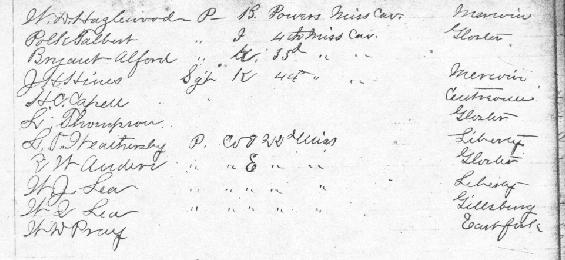 W. D. Hazlewood P B. Powers Miss Cav. Merwin
Polk Talbert " I 4th Miss Cav. Gloster
Bryant Alford " K 33d " "
J. H. Hines Sgt K 44th " " Merwin
H. C. Capell " Centreville
L. Thompson Gloster
L. P. Weathersby P. Co I 22d Miss Liberty
Z. W. Anders " " E " " Gloster
W. J. Lea " " " " " Liberty
W. Z. Lea " " " " " Gillsburg
W. W. Pray East fork